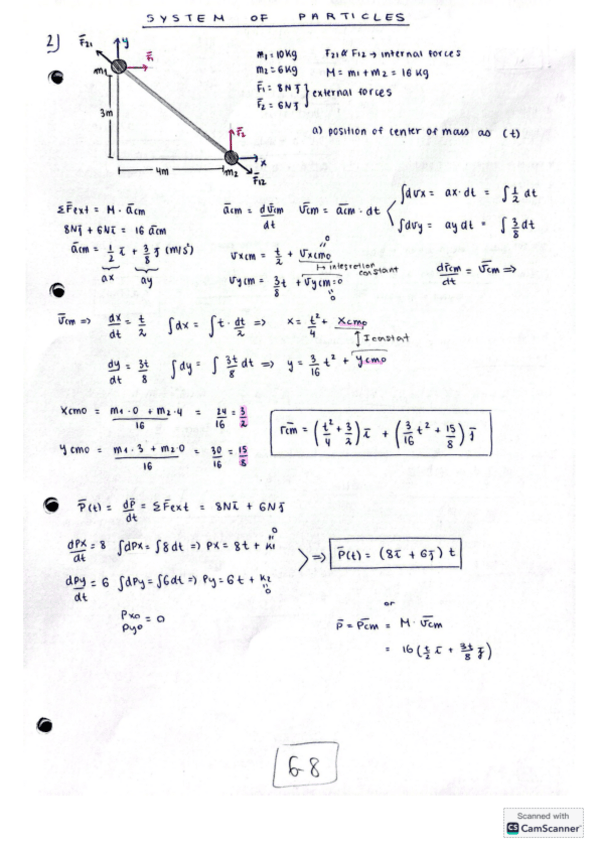 SYSTEM OF PARTICLES
2)
F̄₂₁ y F̄₁
m₁
3m
F̄₂
x
4m m₂ F̄₁₂
m₁ = 10kg F₂₁ & F₁₂ → internal forces
m₂ = 6kg M = m₁ + m₂ = 16 kg
F̄₁ = 8N j̄ } external forces
F̄₂ = 6N j̄
a) position of center of mass as (t)
ΣF̄ext = M · ācm
8Nj̄ + 6Nī = 16 ācm
ācm = 1/2 ī + 3/8 j̄ (m/s²)
ax ay
ācm = dv̄cm/dt v̄cm = ācm · dt
∫dvx = ax · dt = ∫ 1/2 dt
∫dvy = ay dt = ∫ 3/8 dt
vxcm = t/2 + vxcmo = 0
↦ integration constant
vycm = 3t/8 + vycmo = 0
dr̄cm/dt = v̄cm ⇒
v̄cm ⇒ dx/dt = t/2 ∫dx = ∫ t · dt/2 ⇒ x = t²/4 + xcmo
↑ I constant
dy/dt = 3t/8 ∫dy = ∫ 3t/8 dt ⇒ y = 3/16 t² + ycmo
xcmo = m₁·0 + m₂·4 / 16 = 24/16 = 3/2
ycmo = m₁·3 + m₂·0 / 16 = 30/16 = 15/8
r̄cm = (t²/4 + 3/2) ī + (3/16 t² + 15/8) j̄
P̄(t) = dp̄/dt = ΣF̄ext = 8Nī + 6Nj̄
dPx/dt = 8 ∫dPx = ∫8dt ⇒ Px = 8t + K₁ = 0
dPy/dt = 6 ∫dPy = ∫6dt ⇒ Py = 6t + K₂ = 0
⇒ P̄(t) = (8ī + 6j̄) t
Pxo = 0
Pyo
or
P̄ = P̄cm = M · v̄cm
= 16 (t/2 ī + 3t/8 j̄)
68
Scanned with
CS CamScanner